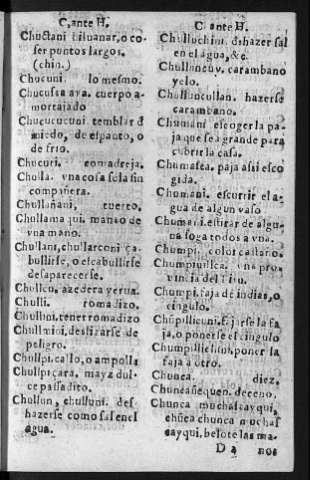 C, ante H.
Chuctani l. iluanar, o co
ser puntos largos.
(chin.)
Chucuni. lo mesmo.
Chucusca aya. cuerpo a-
mortajado
Chucucucuni. temblar d
miedo, de espanto, o
de frio.
Chucuri. comadreja.
Chulla. vna cosa sola sin
compañera.
Chullañani, tuerto.
Chullama qui. manco de
vna mano.
Chullani, chullarconi
bullirse, o escabullirse
desaparecerse.
Chullcu. azedera yerua.
Chulli. romadizo.
Chullini. tener romadizo
Chullmini. deslizarse de
peligro.
Chullpi. callo, o ampolla
Chullpi çara. mayz dul-
ce passadito.
Chullun, chulluni. des-
hazerse como sal en el
agua.
C ante H.
Chulluchini. deshazer sal
en el agua, &c.
Chulluncuy. carambano
yelo.
Chulluncullan. hazerse
carambano.
Chumani escoger la pa-
ja que sea grande para
cubrir la casa.
Chumasca. paja assi esco
gida.
Chumani. escurrir el a-
gua de algun vaso
Chumani. estirar de algu-
na soga todos a vna.
Chumpi. color castaño.
Chumpiuillca. vna pro-
uincia del
Chumpi. faja de indias, o
cingulo.
Chũpillicuni. fajarse la fa
ja, o ponerse el cingulo
Chumpillichini. poner la
faja a otro.
Chunca. diez.
Chuncañequen. deceno.
Chunca muchascayqui,
chũca chunca muchas
cayqui, besote las ma-
D 4 nos